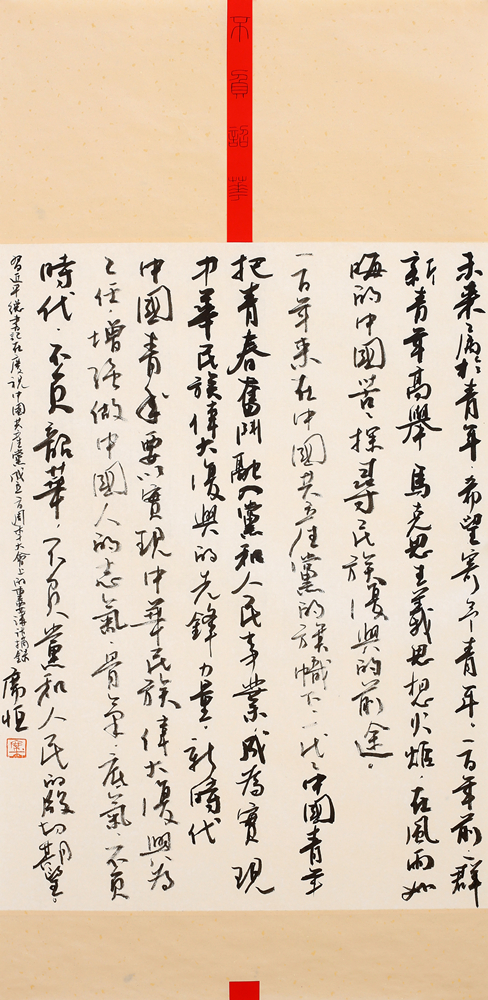 不負韶華
未来属於青年，希望寄予青年。一百年前，一群
新青年高舉馬克思主義思想火炬，在風雨如
晦的中國苦〻探尋民族復興的前途。
一百年来在中國共產黨的旗幟下，一代〻中國青年
把青春奮鬥融入黨和人民事業，成為實現
中華民族偉大復興的先鋒力量，新時代
中國青年要以實現中華民族偉大復興為
己任，增強做中國人的志氣，骨氣，底氣，不負
時代，不負韶華，不負黨和人民的殷切期望。
習近平總書記在慶祝中國共產黨成立百周年大會上的重要講話摘錄
席恒